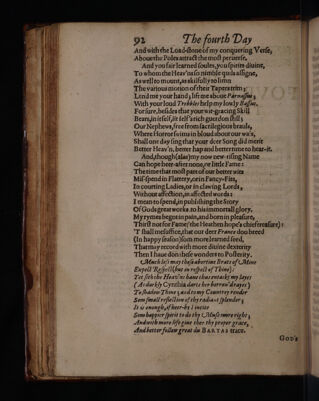 92 The fourth Day
And with the Load-stone of my conquering Verse,
About the Poles attract the most perverse.
And you fair learned soules, you spirits divine,
To whom the Heav'ns so nimble quils assigne,
As well to mount, as skilfully to limn
The various motion of their Tapers trim;
Lend me your hand; lift me above Parnassus;
With your loud Trebbles help my lowly Bassus.
For sure, besides that your wit-gracing Skill
Bears, in it self, it self's rich guerdon still;
Our Nephews, free from sacrilegious brauls,
Where Horror swims in bloud about our wals,
Shall one day sing that your deer Song did merit
Better Heav'n, better hap and better time to hear-it.
And, though (alas) my now new-rising Name
Can hope here-after none, or little Fame:
The time that most part of our better wits
Mis-spend in Flattery, or in Fancy-Fits,
In courting Ladies, or in clawing Lords,
Without affection, in affected words:
I mean to spend, in publishing the Story
Of Gods great works to his immortall glory.
My rymes begot in pain, and born in pleasure,
Thirst not for Fame (the Heathen hope's chief treasure):
'T shall me suffice, that our deer France doo breed
(In happy season) som more learned seed,
That may record with more divine dexterity
Then I haue don these wonders to Posterity.
Much les may these abortiue Brats of Mine
Expect Respect (but in respect of Thine):
Yet sith the Heav'ns haue thus entaskt my layes
(As darkly Cynthia darts her borrow'd rayes)
To shadow Thine; and to my Countrey render
Som small reflection of thy radiant splendor;
It is enough, if heer-by I incite
Som happier spirit to do thy Muse more right;
And with more life giue thee thy proper grace,
And better follow great du BARTAS trace.
GOD'S